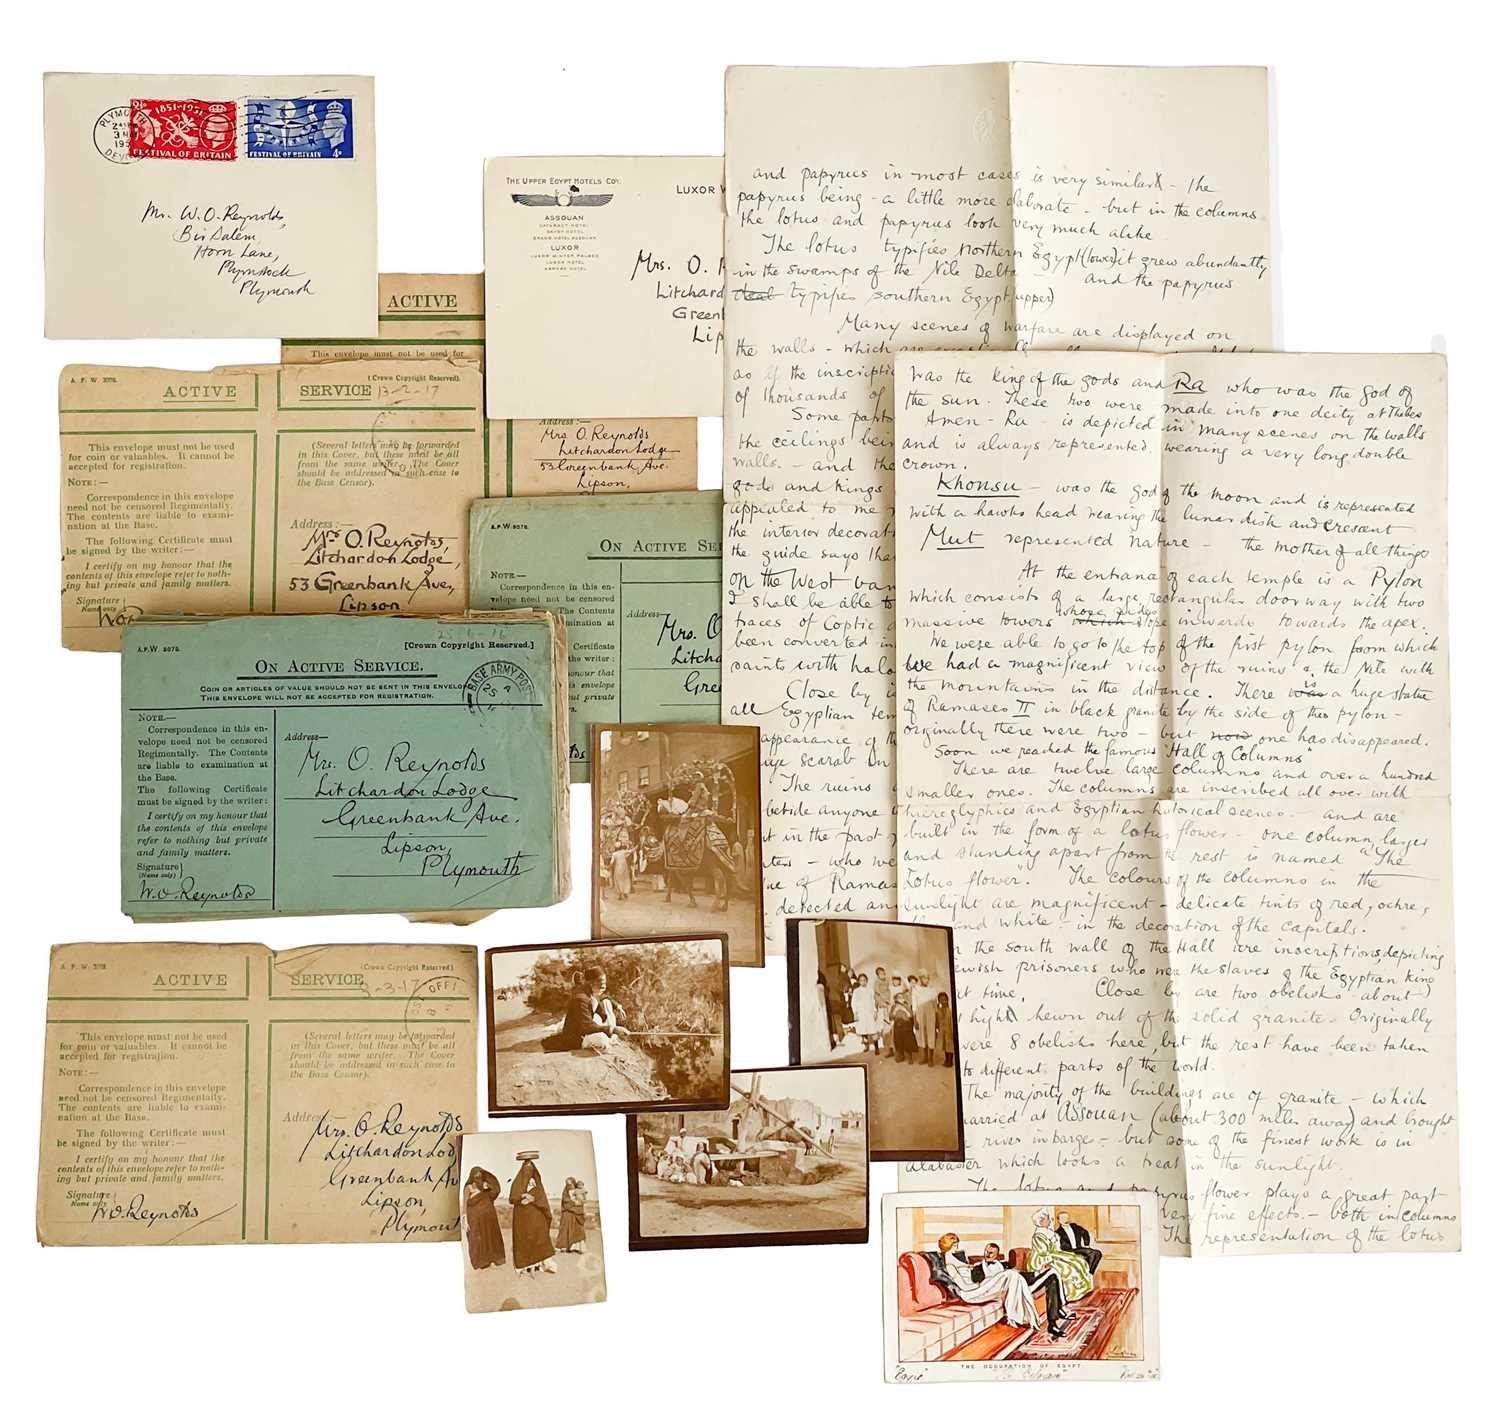 PLYMOUTH
DEVON
1851-1951
FESTIVAL OF BRITAIN
FESTIVAL OF BRITAIN
4D
Mr. W. O. Reynolds
Bir Salem,
Horn Lane,
Plymstock
Plymouth
THE UPPER EGYPT HOTELS COY.
ASSOUAN
CATARACT HOTEL
SAVOY HOTEL
GRAND HOTEL ASSOUAN
LUXOR
LUXOR WINTER PALACE
LUXOR HOTEL
KARNAK HOTEL
LUXOR W
Mrs. O. R
Litchard
Green
Lip
ACTIVE
This envelope must not be used for
Address:—
Mrs O. Reynolds
Litchardon Lodge
53 Greenbank Ave.
Lipson,
A. F. W. 3078.
ACTIVE SERVICE
(Crown Copyright Reserved.)
13-2-17
This envelope must not be used
for coin or valuables. It cannot be
accepted for registration.
NOTE:—
Correspondence in this envelope
need not be censored Regimentally.
The contents are liable to exami-
nation at the Base.
The following Certificate must
be signed by the writer:—
I certify on my honour that the
contents of this envelope refer to noth-
ing but private and family matters.
Signature
Name only
(Several letters may be forwarded
in this Cover, but these must be all
from the same writer. The Cover
should be addressed in such case to
the Base Censor.)
Address:—
Mrs O. Reynolds,
Litchardon Lodge,
53 Greenbank Ave,
Lipson
A.F.W. 3078.
ON ACTIVE SE
NOTE.—
Correspondence in this en-
velope need not be censored
The Contents
examination at
Certificate
the writer:
honour that
this envelope
but private
Address
Mrs. O
Litch
Gre
A.F.W. 3078.
25-4-16
[Crown Copyright Reserved.]
ON ACTIVE SERVICE.
COIN OR ARTICLES OF VALUE SHOULD NOT BE SENT IN THIS ENVELOP
THIS ENVELOPE WILL NOT BE ACCEPTED FOR REGISTRATION.
BASE ARMY POS
25 4
NOTE.—
Correspondence in this en-
velope need not be censored
Regimentally. The Contents
are liable to examination at
the Base.
The following Certificate
must be signed by the writer:
I certify on my honour that
the contents of this envelope
refer to nothing but private
and family matters.
Signature
(Name only)
W. O. Reynolds
Address—
Mrs. O. Reynolds
Litchardon Lodge
Greenbank Ave.
Lipson,
Plymouth
A. F. W. 3078.
ACTIVE SERVICE
(Crown Copyright Reserved)
3-3-17
This envelope must not be used
for coin or valuables. It cannot be
accepted for registration.
NOTE:—
Correspondence in this envelope
need not be censored Regimentally.
The contents are liable to exami-
nation at the Base.
The following Certificate must
be signed by the writer:—
I certify on my honour that the
contents of this envelope refer to noth-
ing but private and family matters.
Signature
Name only
W. O. Reynolds
(Several letters may be forwarded
in this Cover, but these must be all
from the same writer. The Cover
should be addressed in such case to
the Base Censor.)
Address:—
Mrs. O. Reynolds
Litchardon Lod
Greenbank Av
Lipson,
Plymout
and papyrus in most cases is very similar - the
papyrus being - a little more elaborate - but in the columns
the lotus and papyrus look very much alike.
The lotus typifies Northern Egypt (lower) it grew abundantly
in the swamps of the Nile Delta - and the papyrus
typifies southern Egypt (upper)
Many scenes of warfare are displayed on
the walls - which are
as if the inscripti
of thousands of
Some parts
the ceilings bein
walls. - and the
gods and kings
appealed to me
the interior decorat
the guide says that
on the West
I shall be able to
traces of Coptic
been converted in
saints with halo
Close by i
all Egyptian tem
appearance of th
scarab on
The ruins
beside anyone
in the past
who we
of Ramas
detected and
was the king of the gods and Ra who was the god of
the sun. These two were made into one deity at Thebes
Amen-Ra - is depicted in many scenes on the walls
and is always represented wearing a very long double
crown.
Khonsu - was the god of the moon and is represented
with a hawks head wearing the lunar disk and crescent
Mut represented nature - the mother of all things
At the entrance of each temple is a Pylon
which consists of a large rectangular doorway with two
massive towers whose sides slope inwards towards the apex.
We were able to go to the top of the first pylon from which
we had a magnificent view of the ruins & the Nile with
the mountains in the distance. There is a huge statue
of Ramases II in black granite by the side of this pylon -
originally there were two - but now one has disappeared.
Soon we reached the famous "Hall of Columns"
There are twelve large columns and over a hundred
smaller ones. The columns are inscribed all over with
hieroglyphics and Egyptian historical scenes - and are
built in the form of a lotus flower - one column, larger
and standing apart from the rest is named "The
Lotus flower". The colours of the columns in the
sunlight are magnificent - delicate tints of red, ochre,
and white - in the decoration of the capitals.
the south wall of the Hall are inscriptions depicting
Jewish prisoners who were the slaves of the Egyptian king
at time. Close by are two obelisks - about
high hewn out of the solid granite - Originally
were 8 obelisks here, but the rest have been taken
to different parts of the world.
The majority of the buildings are of granite - which
quarried at Assouan (about 300 miles away) and brought
river in barge - but some of the finest work is in
alabaster which looks a treat in the sunlight.
The lotus and papyrus flower plays a great part
very fine effects - both in columns
The representation of the lotus
THE OCCUPATION OF EGYPT.